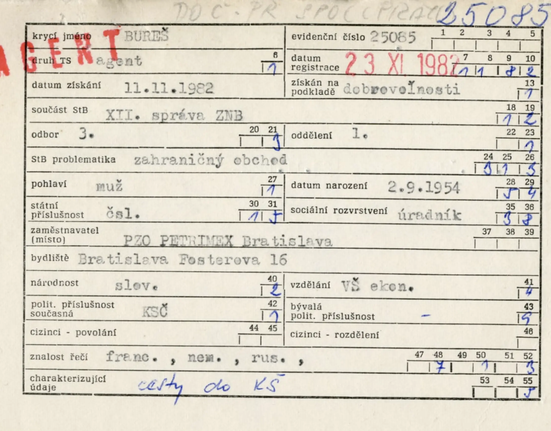 DO Č. PR SPOL 25085
AGENT
krycí jméno BUREŠ evidenční číslo 25085 1 2 3 4 5
druh TS agent 6 1 datum registrace 23 XI 1982 7 8 9 10 1 1 8 2
datum získání 11.11.1982 získán na podkladě dobrovoľnosti 13 1
součást StB XII. správa ZNB 18 19 1 2
odbor 3. 20 21 3 oddělení 1. 22 23 1
StB problematika zahraničný obchod 24 25 26 3 1 3
pohlaví muž 27 1 datum narození 2.9.1954 28 29 5 4
státní příslušnost čsl. 30 31 1 5 sociální rozvrstvení úradník 35 36 3 8
zaměstnavatel (místo) PZO PETRIMEX Bratislava 37 38 39
bydliště Bratislava Fosterova 16
národnost slov. 40 2 vzdělání VŠ ekon. 41 4
polit. příslušnost současná KSČ 42 1 bývalá polit. příslušnost - 43 9
cizinci - povolání 44 45 cizinci - rozdělení 46
znalost řečí franc. , nem. , rus. , 47 48 49 50 51 52 7 1 3
charakterizující údaje cesty do KŠ 53 54 55 5